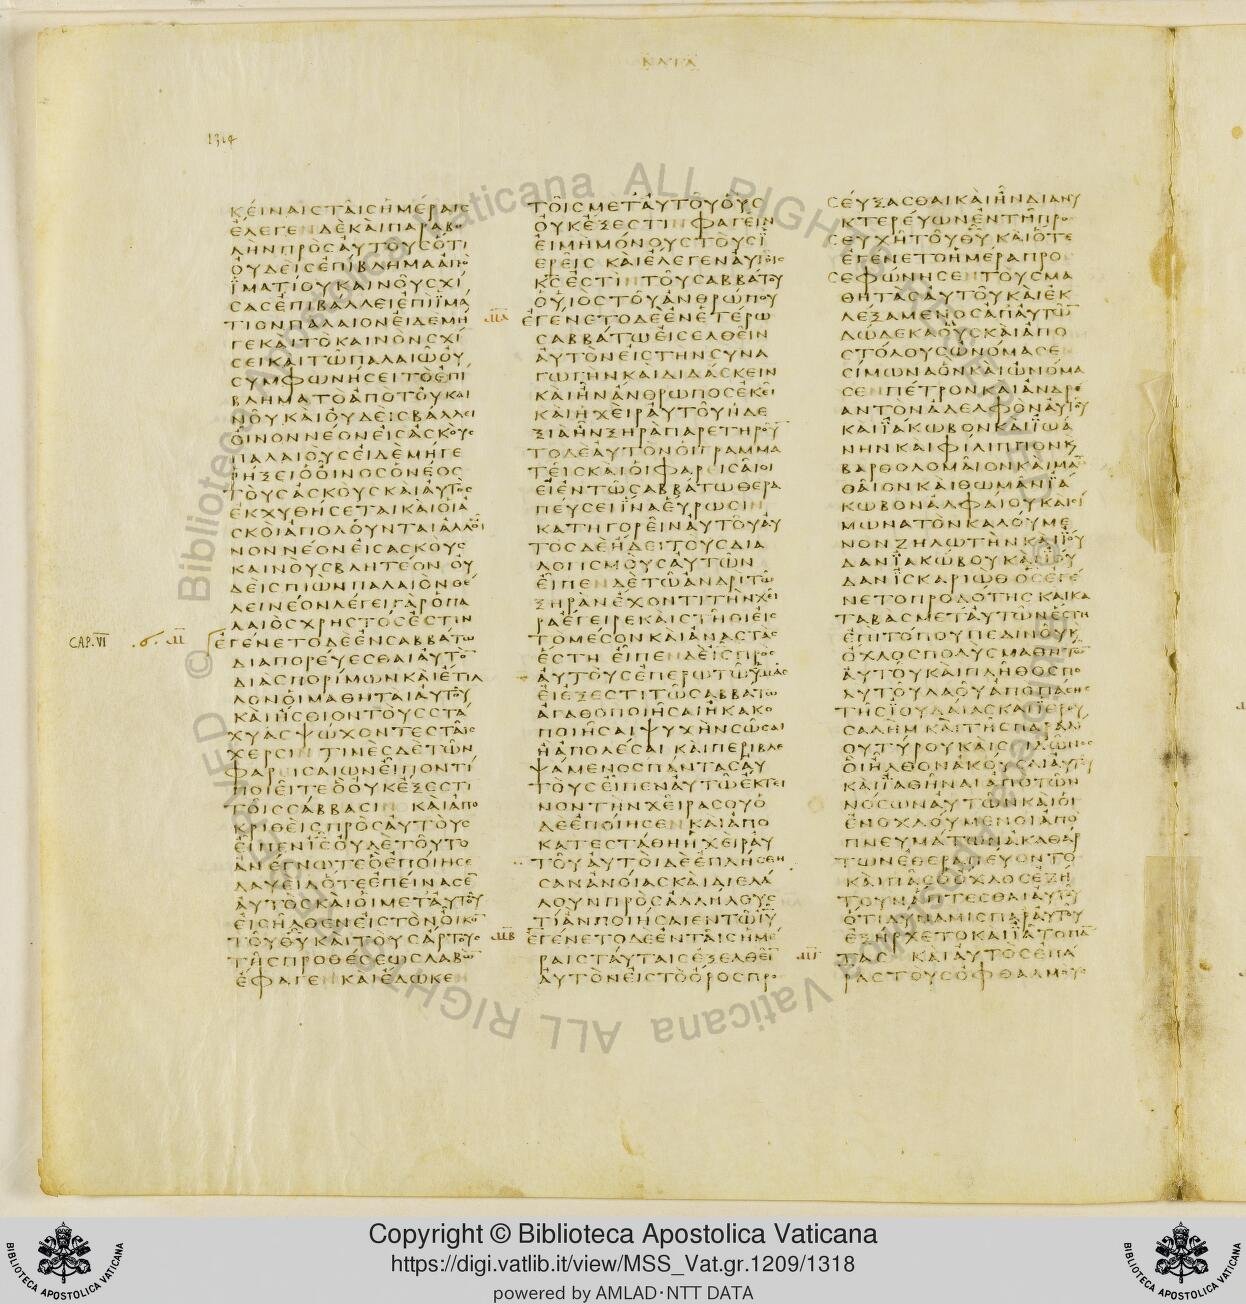 ΚΑΤΑ
1314
ΚΕΙΝΑΙΣΤΑΙΣΗΜΕΡΑΙΣ
ΕΛΕΓΕΝΔΕΚΑΙΠΑΡΑΒΟ
ΛΗΝΠΡΟΣΑΥΤΟΥΣΟΤΙ
ΟΥΔΕΙΣΕΠΙΒΛΗΜΑΑΠΟ
ΪΜΑΤΙΟΥΚΑΙΝΟΥΣΧΙ
ΣΑΣΕΠΙΒΑΛΛΕΙΕΠΙΪΜΑ
ΤΙΟΝΠΑΛΑΙΟΝΕΙΔΕΜΗ
ΓΕΚΑΙΤΟΚΑΙΝΟΝΣΧΙ
ΣΕΙΚΑΙΤΩΠΑΛΑΙΩΟΥ
ΣΥΜΦΩΝΗΣΕΙΤΟΕΠΙ
ΒΛΗΜΑΤΟΑΠΟΤΟΥΚΑΙ
ΝΟΥΚΑΙΟΥΔΕΙΣΒΑΛΛΕΙ
ΟΙΝΟΝΝΕΟΝΕΙΣΑΣΚΟΥΣ
ΠΑΛΑΙΟΥΣΕΙΔΕΜΗΓΕ
ΡΗΞΕΙΟΟΙΝΟΣΟΝΕΟΣ
ΤΟΥΣΑΣΚΟΥΣΚΑΙΑΥΤΟΣ
ΕΚΧΥΘΗΣΕΤΑΙΚΑΙΟΙΑ
ΣΚΟΙΑΠΟΛΟΥΝΤΑΙΑΛΛΟΙ
ΝΟΝΝΕΟΝΕΙΣΑΣΚΟΥΣ
ΚΑΙΝΟΥΣΒΛΗΤΕΟΝ ΟΥ
ΔΕΙΣΠΙΩΝΠΑΛΑΙΟΝΘΕ
ΛΕΙΝΕΟΝΛΕΓΕΙΓΑΡΟΠΑ
ΛΑΙΟΣΧΡΗΣΤΟΣΕΣΤΙΝ
CAP.VI Μ ΕΓΕΝΕΤΟΔΕΕΝΣΑΒΒΑΤΩ
ΔΙΑΠΟΡΕΥΕΣΘΑΙΑΥΤΟ̅
ΔΙΑΣΠΟΡΙΜΩΝΚΑΙΕΤΙΛ
ΛΟΝΟΙΜΑΘΗΤΑΙΑΥΤΟΥ
ΚΑΙΗΣΘΙΟΝΤΟΥΣΣΤΑ
ΧΥΑΣΨΩΧΟΝΤΕΣΤΑΙΣ
ΧΕΡΣΙΝ ΤΙΝΕΣΔΕΤΩΝ
ΦΑΡΕΙΣΑΙΩΝΕΙΠΟΝΤΙ
ΠΟΙΕΙΤΕΟΟΥΚΕΞΕΣΤΙ
ΤΟΙΣΣΑΒΒΑΣΙΝ ΚΑΙΑΠΟ
ΚΡΙΘΕΙΣΠΡΟΣΑΥΤΟΥΣ
ΕΙΠΕΝΙ̅Σ̅ΟΥΔΕΤΟΥΤΟ
ΑΝΕΓΝΩΤΕΟΕΠΟΙΗΣΕ
ΔΑΥΕΙΔΟΤΕΕΠΕΙΝΑΣΕ̅
ΑΥΤΟΣΚΑΙΟΙΜΕΤΑΥΤΟΥ
ΕΙΣΗΛΘΕΝΕΙΣΤΟΝΟΙΚΟ̅
ΤΟΥΘ̅Υ̅ΚΑΙΤΟΥΣΑΡΤΟΥΣ
ΤΗΣΠΡΟΘΕΣΕΩΣΛΑΒΩ̅
ΕΦΑΓΕΝΚΑΙΕΔΩΚΕΝ
ΤΟΙΣΜΕΤΑΥΤΟΥΟΥΣ
ΟΥΚΕΞΕΣΤΙΝΦΑΓΕΙΝ
ΕΙΜΗΜΟΝΟΥΣΤΟΥΣΪ
ΕΡΕΙΣ ΚΑΙΕΛΕΓΕΝΑΥΤΟΙΣ
ΚΣΕΣΤΙΝΤΟΥΣΑΒΒΑΤΟΥ
ΟΥΙΟΣΤΟΥΑΝΘΡΩΠΟΥ
ΜΑ ΕΓΕΝΕΤΟΔΕΕΝΕΤΕΡΩ
ΣΑΒΒΑΤΩΕΙΣΕΛΘΕΙΝ
ΑΥΤΟΝΕΙΣΤΗΝΣΥΝΑ
ΓΩΓΗΝΚΑΙΔΙΔΑΣΚΕΙΝ
ΚΑΙΗΝΑΝΘΡΩΠΟΣΕΚΕΙ
ΚΑΙΗΧΕΙΡΑΥΤΟΥΗΔΕ
ΞΙΑΗΝΞΗΡΑΠΑΡΕΤΗΡΟΥ̅
ΤΟΔΕΑΥΤΟΝΟΙΓΡΑΜΜΑ
ΤΕΙΣΚΑΙΟΙΦΑΡΕΙΣΑΙΟΙ
ΕΙΕΝΤΩΣΑΒΒΑΤΩΘΕΡΑ
ΠΕΥΣΕΙΪΝΑΕΥΡΩΣΙΝ
ΚΑΤΗΓΟΡΕΙΝΑΥΤΟΥΑΥ
ΤΟΣΔΕΗΔΕΙΤΟΥΣΔΙΑ
ΛΟΓΙΣΜΟΥΣΑΥΤΩΝ
ΕΙΠΕΝΔΕΤΩΑΝΔΡΙΤΩ
ΞΗΡΑΝΕΧΟΝΤΙΤΗΝΧΕΙ
ΡΑΕΓΕΙΡΕΚΑΙΣΤΗΘΙΕΙΣ
ΤΟΜΕΣΟΝΚΑΙΑΝΑΣΤΑΣ
ΕΣΤΗ ΕΙΠΕΝΔΕΙΣΠΡΟΣ
ΑΥΤΟΥΣΕΠΕΡΩΤΩΥΜΑΣ
ΕΙΕΞΕΣΤΙΤΩΣΑΒΒΑΤΩ
ΑΓΑΘΟΠΟΙΗΣΑΙΗΚΑΚΟ
ΠΟΙΗΣΑΙΨΥΧΗΝΣΩΣΑΙ
ΗΑΠΟΛΕΣΑΙ ΚΑΙΠΕΡΙΒΛΕ
ΨΑΜΕΝΟΣΠΑΝΤΑΣΑΥ
ΤΟΥΣΕΙΠΕΝΑΥΤΩΕΚΤΕΙ
ΝΟΝΤΗΝΧΕΙΡΑΣΟΥΟ
ΔΕΕΠΟΙΗΣΕΝ ΚΑΙΑΠΟ
ΚΑΤΕΣΤΑΘΗΗΧΕΙΡΑΥ
ΤΟΥΑΥΤΟΙΔΕΕΠΛΗΣΘΗ
ΣΑΝΑΝΟΙΑΣΚΑΙΔΙΕΛΑ
ΛΟΥΝΠΡΟΣΑΛΛΗΛΟΥΣ
ΤΙΑΝΠΟΙΗΣΑΙΕΝΤΩΙ̅Υ̅
ΜΒ ΕΓΕΝΕΤΟΔΕΕΝΤΑΙΣΗΜΕ
ΡΑΙΣΤΑΥΤΑΙΣΕΞΕΛΘΕΙ̅
ΑΥΤΟΝΕΙΣΤΟΟΡΟΣΠΡΟ
ΣΕΥΞΑΣΘΑΙΚΑΙΗΝΔΙΑΝΥ
ΚΤΕΡΕΥΩΝΕΝΤΗΠΡΟ
ΣΕΥΧΗΤΟΥΘ̅Υ̅ ΚΑΙΟΤΕ
ΕΓΕΝΕΤΟΗΜΕΡΑΠΡΟ
ΣΕΦΩΝΗΣΕΝΤΟΥΣΜΑ
ΘΗΤΑΣΑΥΤΟΥΚΑΙΕΚ
ΛΕΞΑΜΕΝΟΣΑΠΑΥΤΩ̅
ΔΩΔΕΚΑΟΥΣΚΑΙΑΠΟ
ΣΤΟΛΟΥΣΩΝΟΜΑΣΕΝ
ΣΙΜΩΝΑΟΝΚΑΙΩΝΟΜΑ
ΣΕΝΠΕΤΡΟΝΚΑΙΑΝΔΡΕ
ΑΝΤΟΝΑΔΕΛΦΟΝΑΥΤΟΥ
ΚΑΙΪΑΚΩΒΟΝΚΑΙΪΩΑ
ΝΗΝΚΑΙΦΙΛΙΠΠΟΝΚ
ΒΑΡΘΟΛΟΜΑΙΟΝΚΑΙΜΑ
ΘΑΙΟΝΚΑΙΘΩΜΑΝΪΑ
ΚΩΒΟΝΑΛΦΑΙΟΥΚΑΙΣΙ
ΜΩΝΑΤΟΝΚΑΛΟΥΜΕ
ΝΟΝΖΗΛΩΤΗΝΚΑΙΪΟΥ
ΔΑΝΪΑΚΩΒΟΥΚΑΙΪΟΥ
ΔΑΝΪΣΚΑΡΙΩΘΟΣΕΓΕ
ΝΕΤΟΠΡΟΔΟΤΗΣΚΑΙΚΑ
ΤΑΒΑΣΜΕΤΑΥΤΩΝΕΣΤΗ
ΕΠΙΤΟΠΟΥΠΕΔΙΝΟΥΚ
ΟΧΛΟΣΠΟΛΥΣΜΑΘΗΤΩ̅
ΑΥΤΟΥΚΑΙΠΛΗΘΟΣΠΟ
ΑΥΤΟΥΛΑΟΥΑΠΟΠΑΣΗΣ
ΤΗΣΪΟΥΔΑΙΑΣΚΑΙΪΕΡΟΥ
ΣΑΛΗΜΚΑΙΤΗΣΠΑΡΑΛΙ
ΟΥΤΥΡΟΥΚΑΙΣΙΔΩΝΟΣ
ΟΙΗΛΘΟΝΑΚΟΥΣΑΙΑΥΤΟΥ
ΚΑΙΪΑΘΗΝΑΙΑΠΟΤΩΝ
ΝΟΣΩΝΑΥΤΩΝΚΑΙΟΙ
ΕΝΟΧΛΟΥΜΕΝΟΙΑΠΟ
ΠΝΕΥΜΑΤΩΝΑΚΑΘΑΡ
ΤΩΝΕΘΕΡΑΠΕΥΟΝΤΟ
ΚΑΙΠΑΣΟΟΧΛΟΣΕΖΗ
ΤΟΥΝΑΠΤΕΣΘΑΙΑΥΤΟΥ
ΟΤΙΔΥΝΑΜΙΣΠΑΡΑΥΤΟΥ
ΕΞΗΡΧΕΤΟΚΑΙΪΑΤΟΠΑ̅
ΜΓ ΤΑΣ ΚΑΙΑΥΤΟΣΕΠΑ
ΡΑΣΤΟΥΣΟΦΘΑΛΜΟΥΣ
Copyright © Biblioteca Apostolica Vaticana
https://digi.vatlib.it/view/MSS_Vat.gr.1209/1318
powered by AMLAD·NTT DATA
BIBLIOTECA APOSTOLICA VATICANA
BIBLIOTECA APOSTOLICA VATICANA